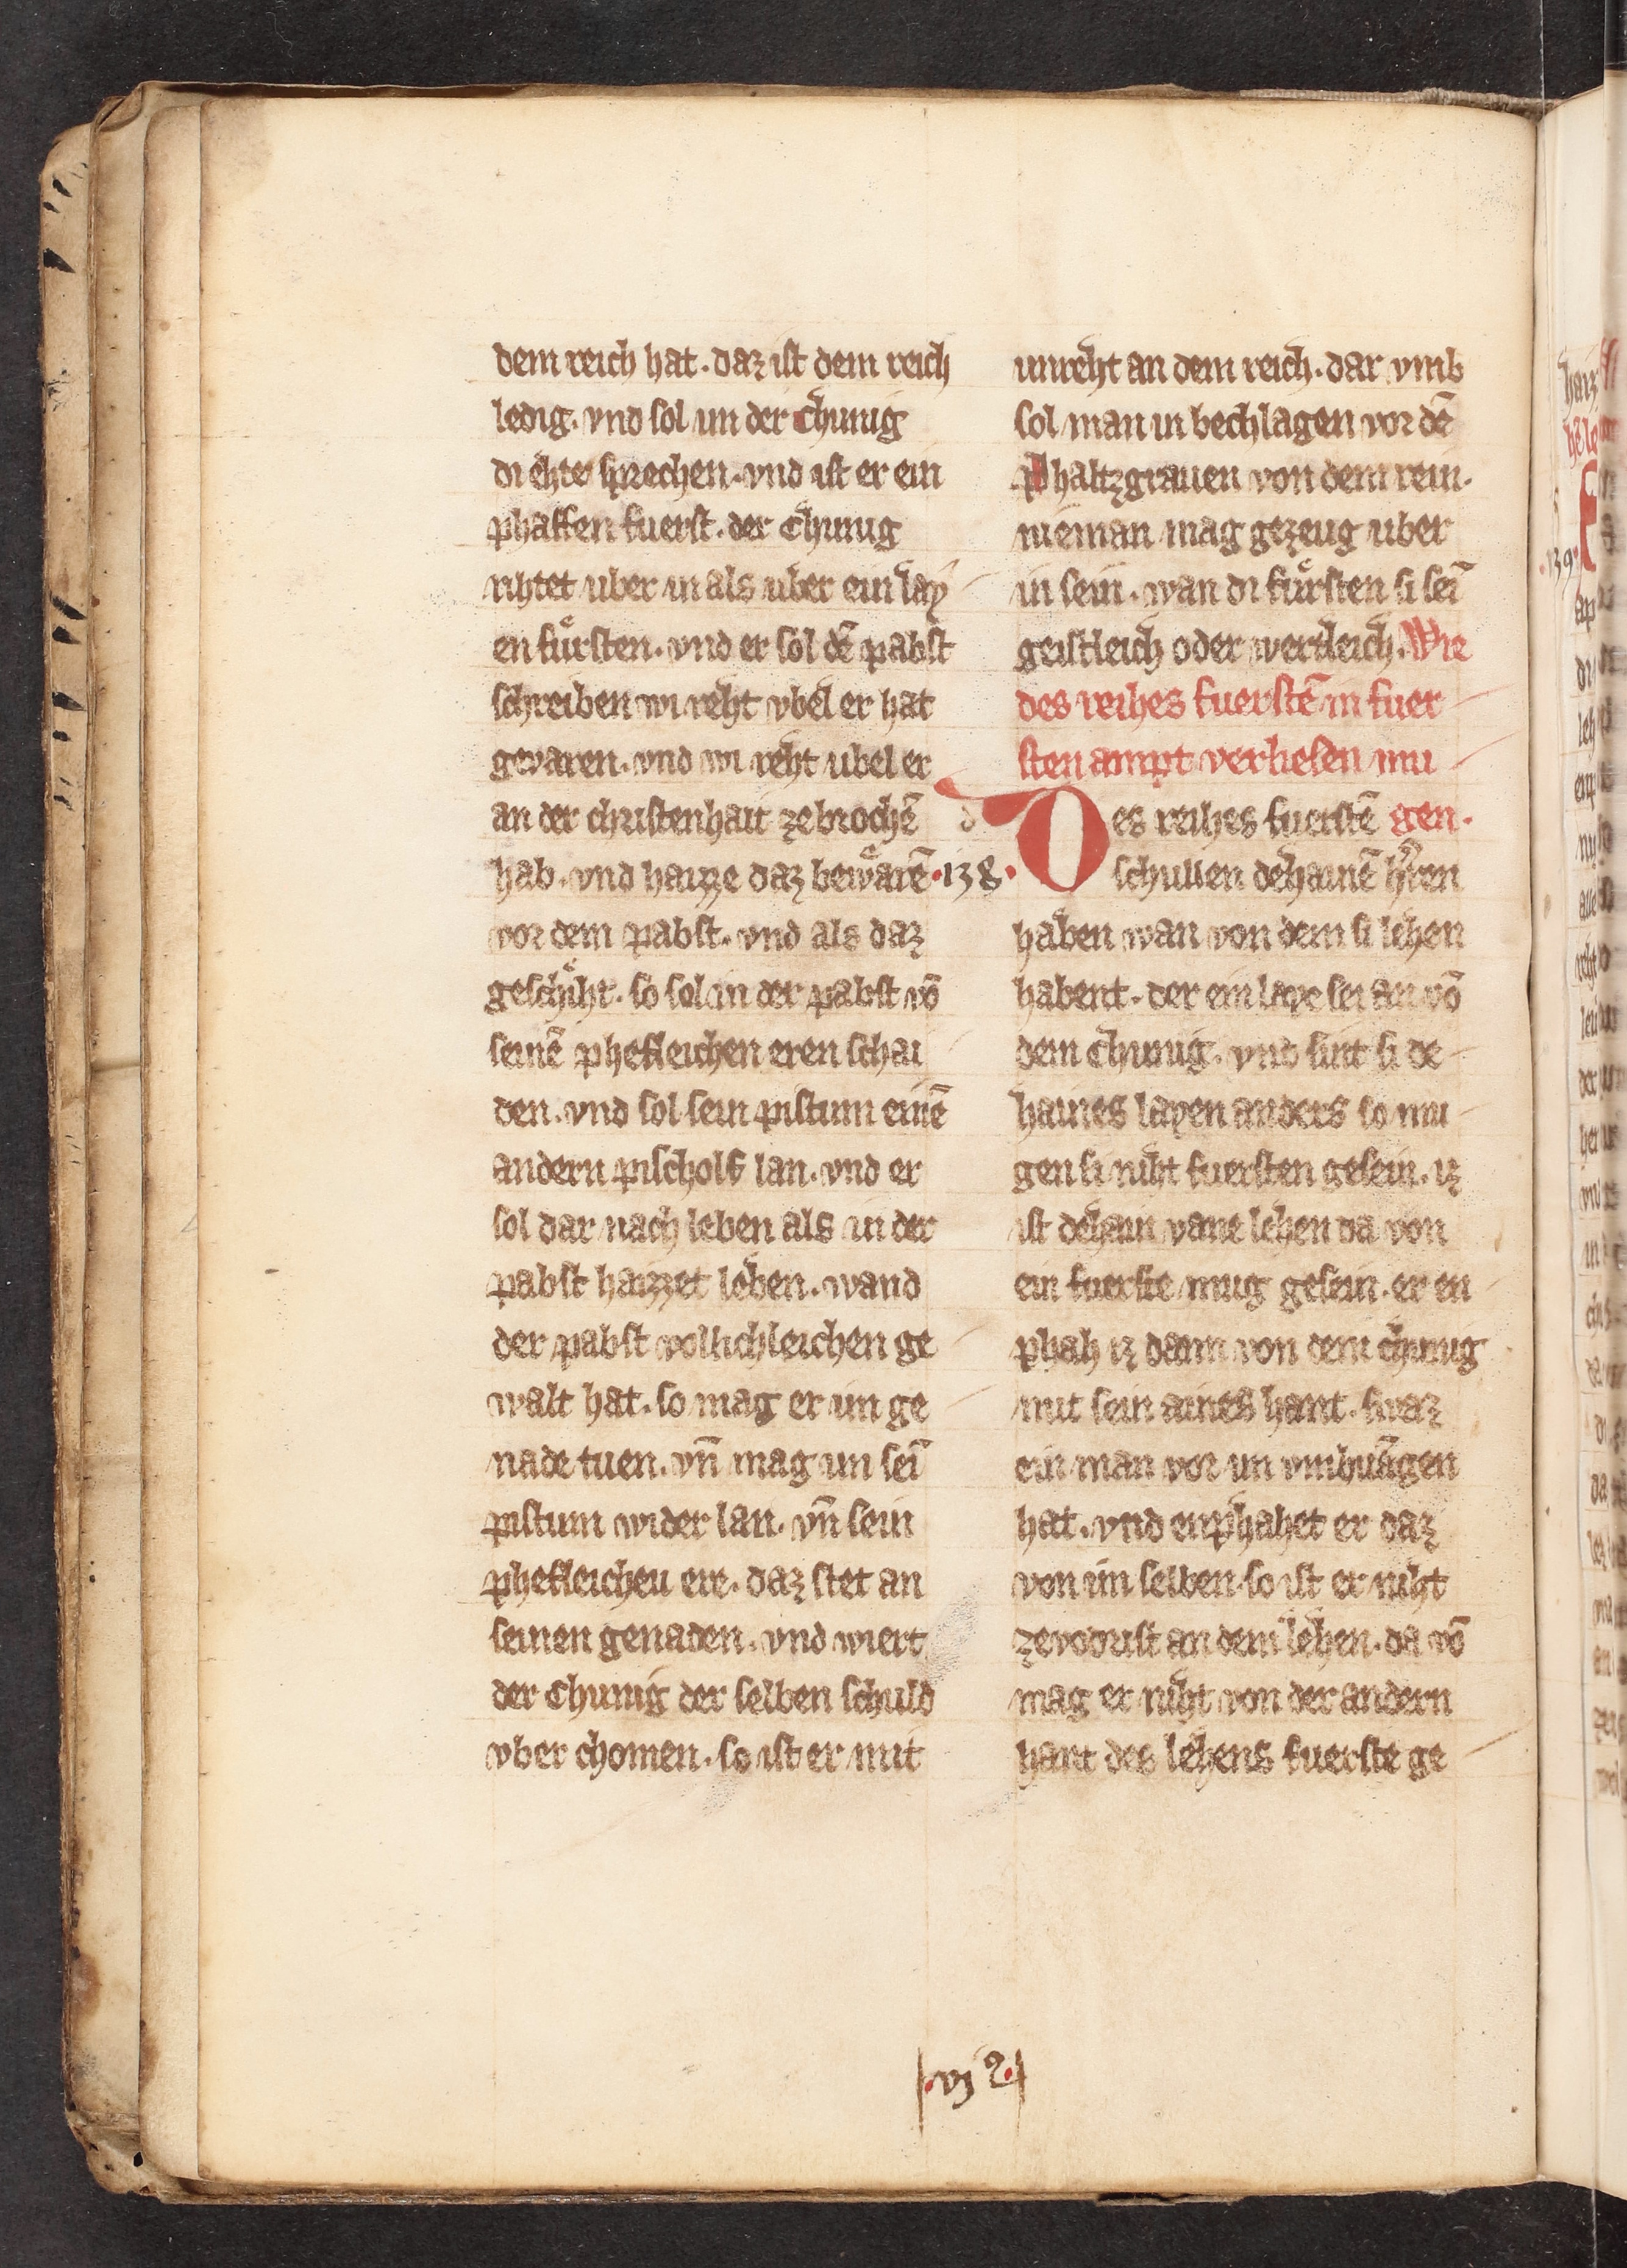 dem reich hat. daz ist dem reich
ledig. vnd sol im der Chunig
di ehte sprechen. vnd ist er ein
phaffen fuerst. der Chunig
rihtet uber in als uber ein lay
en fuͤrsten. vnd er sol dē pabst
schreiben wi reht vbel er hat
gevaren. vnd wi reht ubel er
an der christenhait zebrochē
hab. vnd haizze daz bewaͤrē
vor dem pabst. vnd als daz
geschiht. so sol in der pabst vō
seinē phefleichen eren schai
den. vnd sol sein pistum einē
andern pischolf lan. vnd er
sol dar nach leben als in der
pabst haizzet leben. wand
der pabst vollichleichen ge
walt hat. so mag er im ge
nade tuen. vn̄ mag im sei̅
pistum wider lan. vn̄ sein
phefleicheu ere. daz stet an
seinen genaden. vnd wiert
der Chunig der selben schuld
vber chomen. so ist er mit
unreht an dem reich. dar vmb
sol man in bechlagen vor dē
phaltzgrauen von dem rein.
nieman mag gezeug uber
in sein. wan di fuͤrsten si sei̅
geistleich oder wertleich. Wie
des reihes fuerstē in fuer
sten ampt verliesen mu
gen.
.138.
d
Des reihes fuerstē
schullen dehainē h̅ren
haben wan von dem si lehen
habent. der ein laye sei an vō
dem Chunig. vnd sint si de
haines layen anders so mu
gen si niht fuersten gesein. iz
ist dehain vane lehen da von
ein fuerste mug gesein. er en
phah iz dann von dem chunig
mit sein aines hant. swaz
ein man vor im vmbuāgen
hat. vnd enphahet er daz
von im selben so ist er niht
zevodrist an dem lehen. da vō
mag er niht von der andern
hant des lehens fuerste ge
.vj 2.